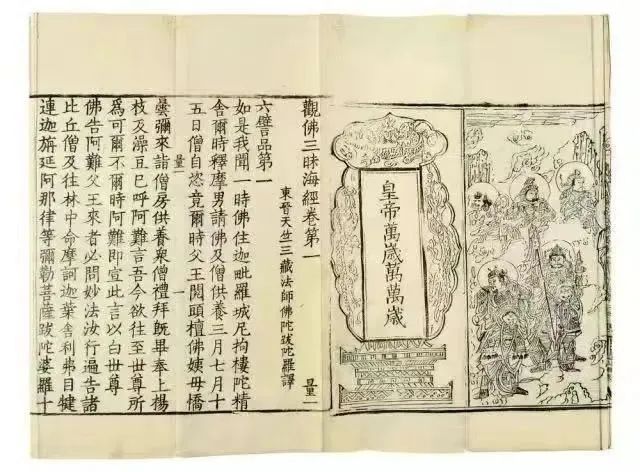 皇帝萬歲萬萬歲
觀佛三昧海經卷第一
量一
東晉天竺三藏法師佛陀跋陀羅譯
六譬品第一
如是我聞一時佛住迦毗羅城尼拘樓陀精
舍爾時釋摩男請佛及僧供養三月七月十
五日僧自恣竟爾時父王閱頭檀佛姨母憍
曇彌來詣僧房供養衆僧禮拜旣畢奉上楊
量一
一
枝及澡豆已呼阿難言吾今欲往至世尊所
爲可爾不爾時阿難即宣此言以白世尊
佛告阿難父王來者必問妙法汝行遍告諸
比丘僧及往林中命摩訶迦葉舍利弗目犍
連迦旃延阿那律等彌勒菩薩跋陀婆羅十